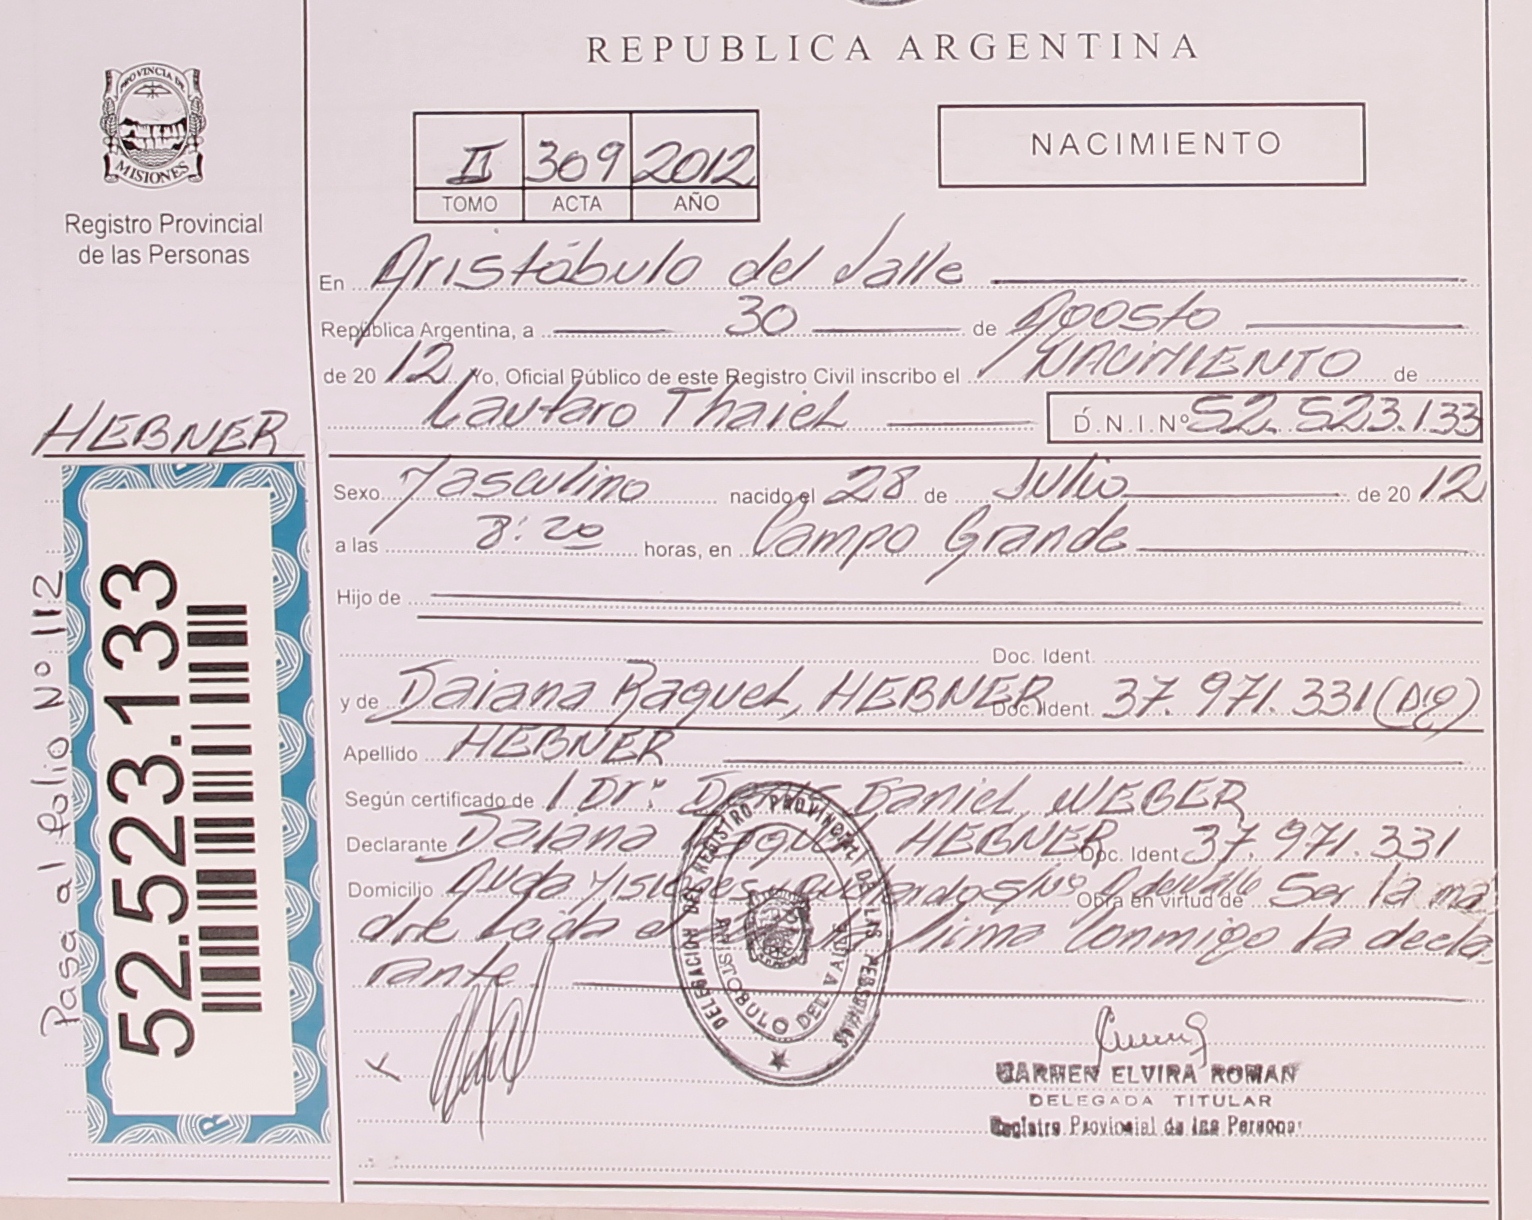 REPUBLICA ARGENTINA
PROVINCIA DE
MISIONES
Registro Provincial
de las Personas
II 309 2012
TOMO ACTA AÑO
NACIMIENTO
En Aristóbulo del Valle
República Argentina, a 30 de Agosto
de 20 12 Yo, Oficial Público de este Registro Civil inscribo el NACIMIENTO de
Lautaro Thaiel D.N.I.Nº 52.523.133
HEBNER
Sexo Masculino nacido el 28 de Julio de 20 12
a las 8:20 horas, en Campo Grande
Hijo de
Doc. Ident.
y de Daiana Raquel, HEBNER Doc. Ident. 37.971.331
Apellido HEBNER
Según certificado de Daniel WEBER
Declarante Daiana HEBNER Doc. Ident 37.971.331
Domicilio Obra en virtud de Ser la ma
dre firma Conmigo la decla
rante.
Pasa al folio Nº 112
52.523.133
DELEGACION DEL REGISTRO PROVINCIAL DE LAS PERSONAS
ARISTOBULO DEL VALLE
CARMEN ELVIRA ROMAN
DELEGADA TITULAR
Registro Provincial de las Personas